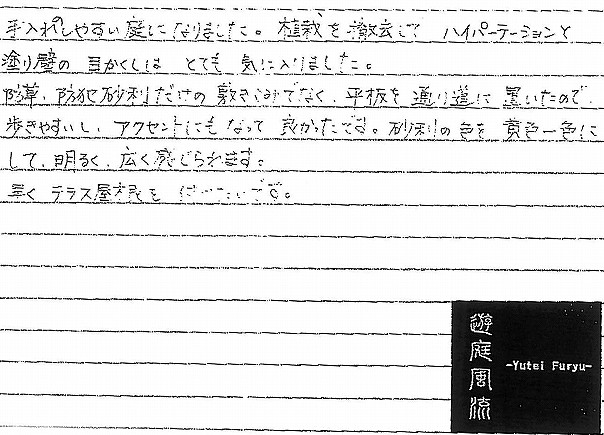 手入れしやすい庭になりました。植栽を撤去して ハイパーテーションと
塗り壁の目かくしは とても 気に入りました。
防草、防犯砂利だけの敷きこみでなく、平板を通り道に置いたので、
歩きやすいし、アクセントにもなって良かったです。砂利の色を黄色一色に
して、明るく、広く感じられます。
早くテラス屋根を 付けたいです。
遊庭風流
-Yutei Furyu-